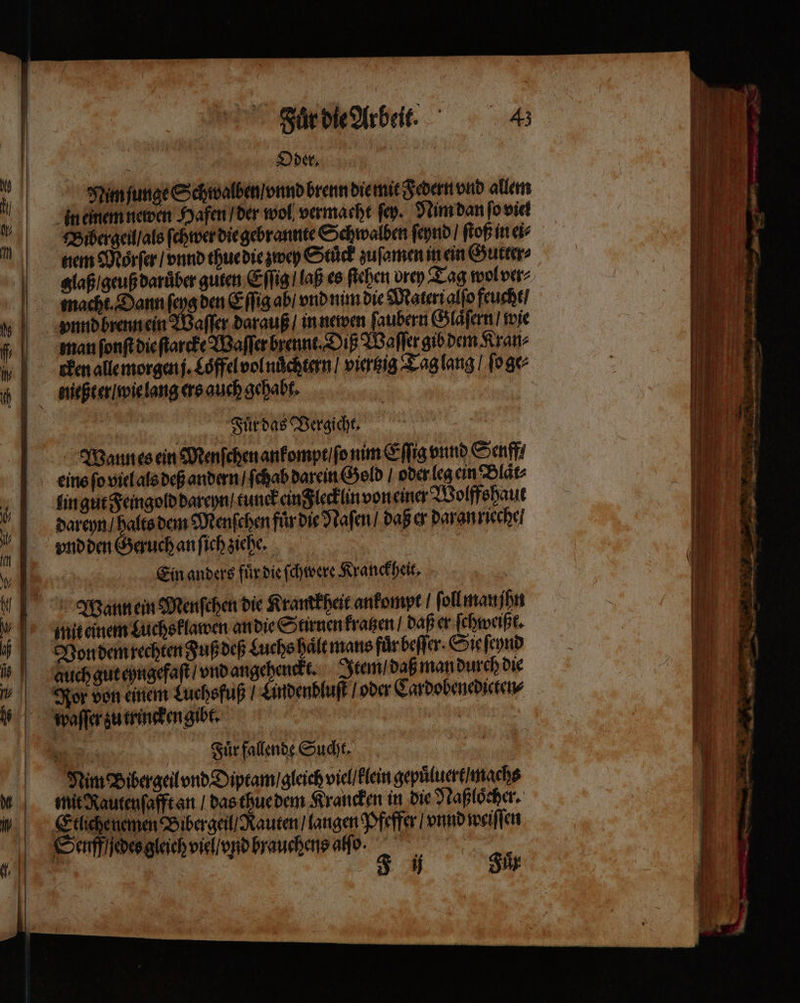 Fůr die Arbeit. 43
Oder,
Nim junge Schwalben/vnnd brenn die mit Federn vnd allem
in einem newen Hafen/der wol vermacht sey. Nim dan so viel
Bibergeil/als schwer die gebrannte Schwalben seynd/stoß in ei⸗
nem Mörser/vnnd thue die zwey Stůck zusamen in ein Gutter⸗
glaß/geuß darůber guten Essig/laß es stehen drey Tag wol ver⸗
macht. Dann seyg den Essig ab/vnd nim die Materi also feucht/
vnnd brenn ein Wasser darauß/in newen saubern Gläsern/wie
man sonst die starcke Wasser brennt. Diß Wasser gib dem Kran⸗
cken alle morgen j. Löffel vol nůchtern/viertzig Tag lang/so ge⸗
nießt er/wie lang ers auch gehabt.
Für das Vergicht.
Wann es ein Menschen ankompt/so nim Essig vnnd Senff/
eins so viel als deß andern/schab darein Gold/oder leg ein Blät⸗
lin gut Feingold dareyn/tunck ein Flecklin von einer Wolffshaut
dareyn/halts dem Menschen für die Nasen/daß er daran rieche/
vnd den Geruch an sich ziehe.
Ein anders für die schwere Kranckheit.
Wann ein Menschen die Kranckheit ankompt/soll man jhn
mit einem Luchsklawen an die Stirnen kratzen/daß er schweißt.
Von dem rechten Fuß deß Luchs hält mans für besser. Sie seynd
auch gut eyngefaßt/vnd angehenckt. Item/daß man durch die
Ror von einem Luchsfuß/Lindenblust/oder Cardobenedicten⸗
wasser zu trincken gibt.
Für fallende Sucht.
Nim Bibergeil vnd Diptam/gleich viel/klein gepůluert/machs
mit Rautensafft an/das thue dem Krancken in die Naßlöcher.
Etliche nemen Bibergeil/Rauten/langen Pfeffer/vnnd weissen
Senff/jedes gleich viel/vnd brauchens also.
F ij Für